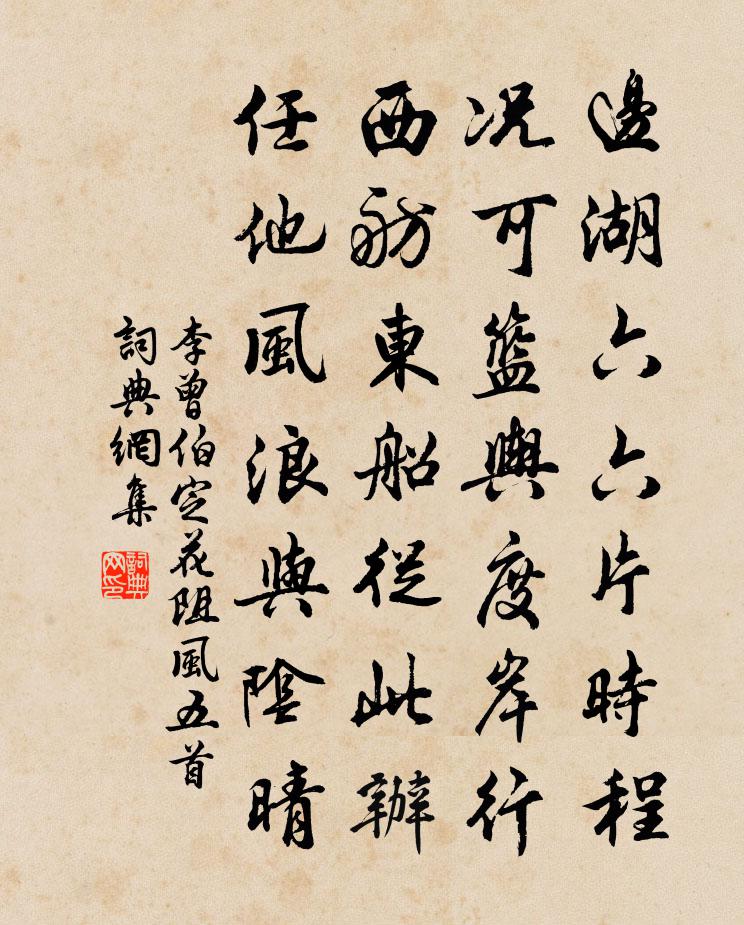 邊湖六六片時程
况可籃輿度岸行
西舫東船從此辦
任他風浪與陰晴
李曾伯定花阻風五首
詞典網集
詞典网印